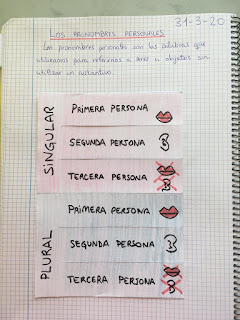 31-3-20
LOS PRONOMBRES PERSONALES
Los pronombres personales son las palabras que
utilizamos para referirnos a seres u objetos sin
utilizar un sustantivo.
SINGULAR
PRIMERA PERSONA
SEGUNDA PERSONA
TERCERA PERSONA
PLURAL
PRIMERA PERSONA
SEGUNDA PERSONA
TERCERA PERSONA